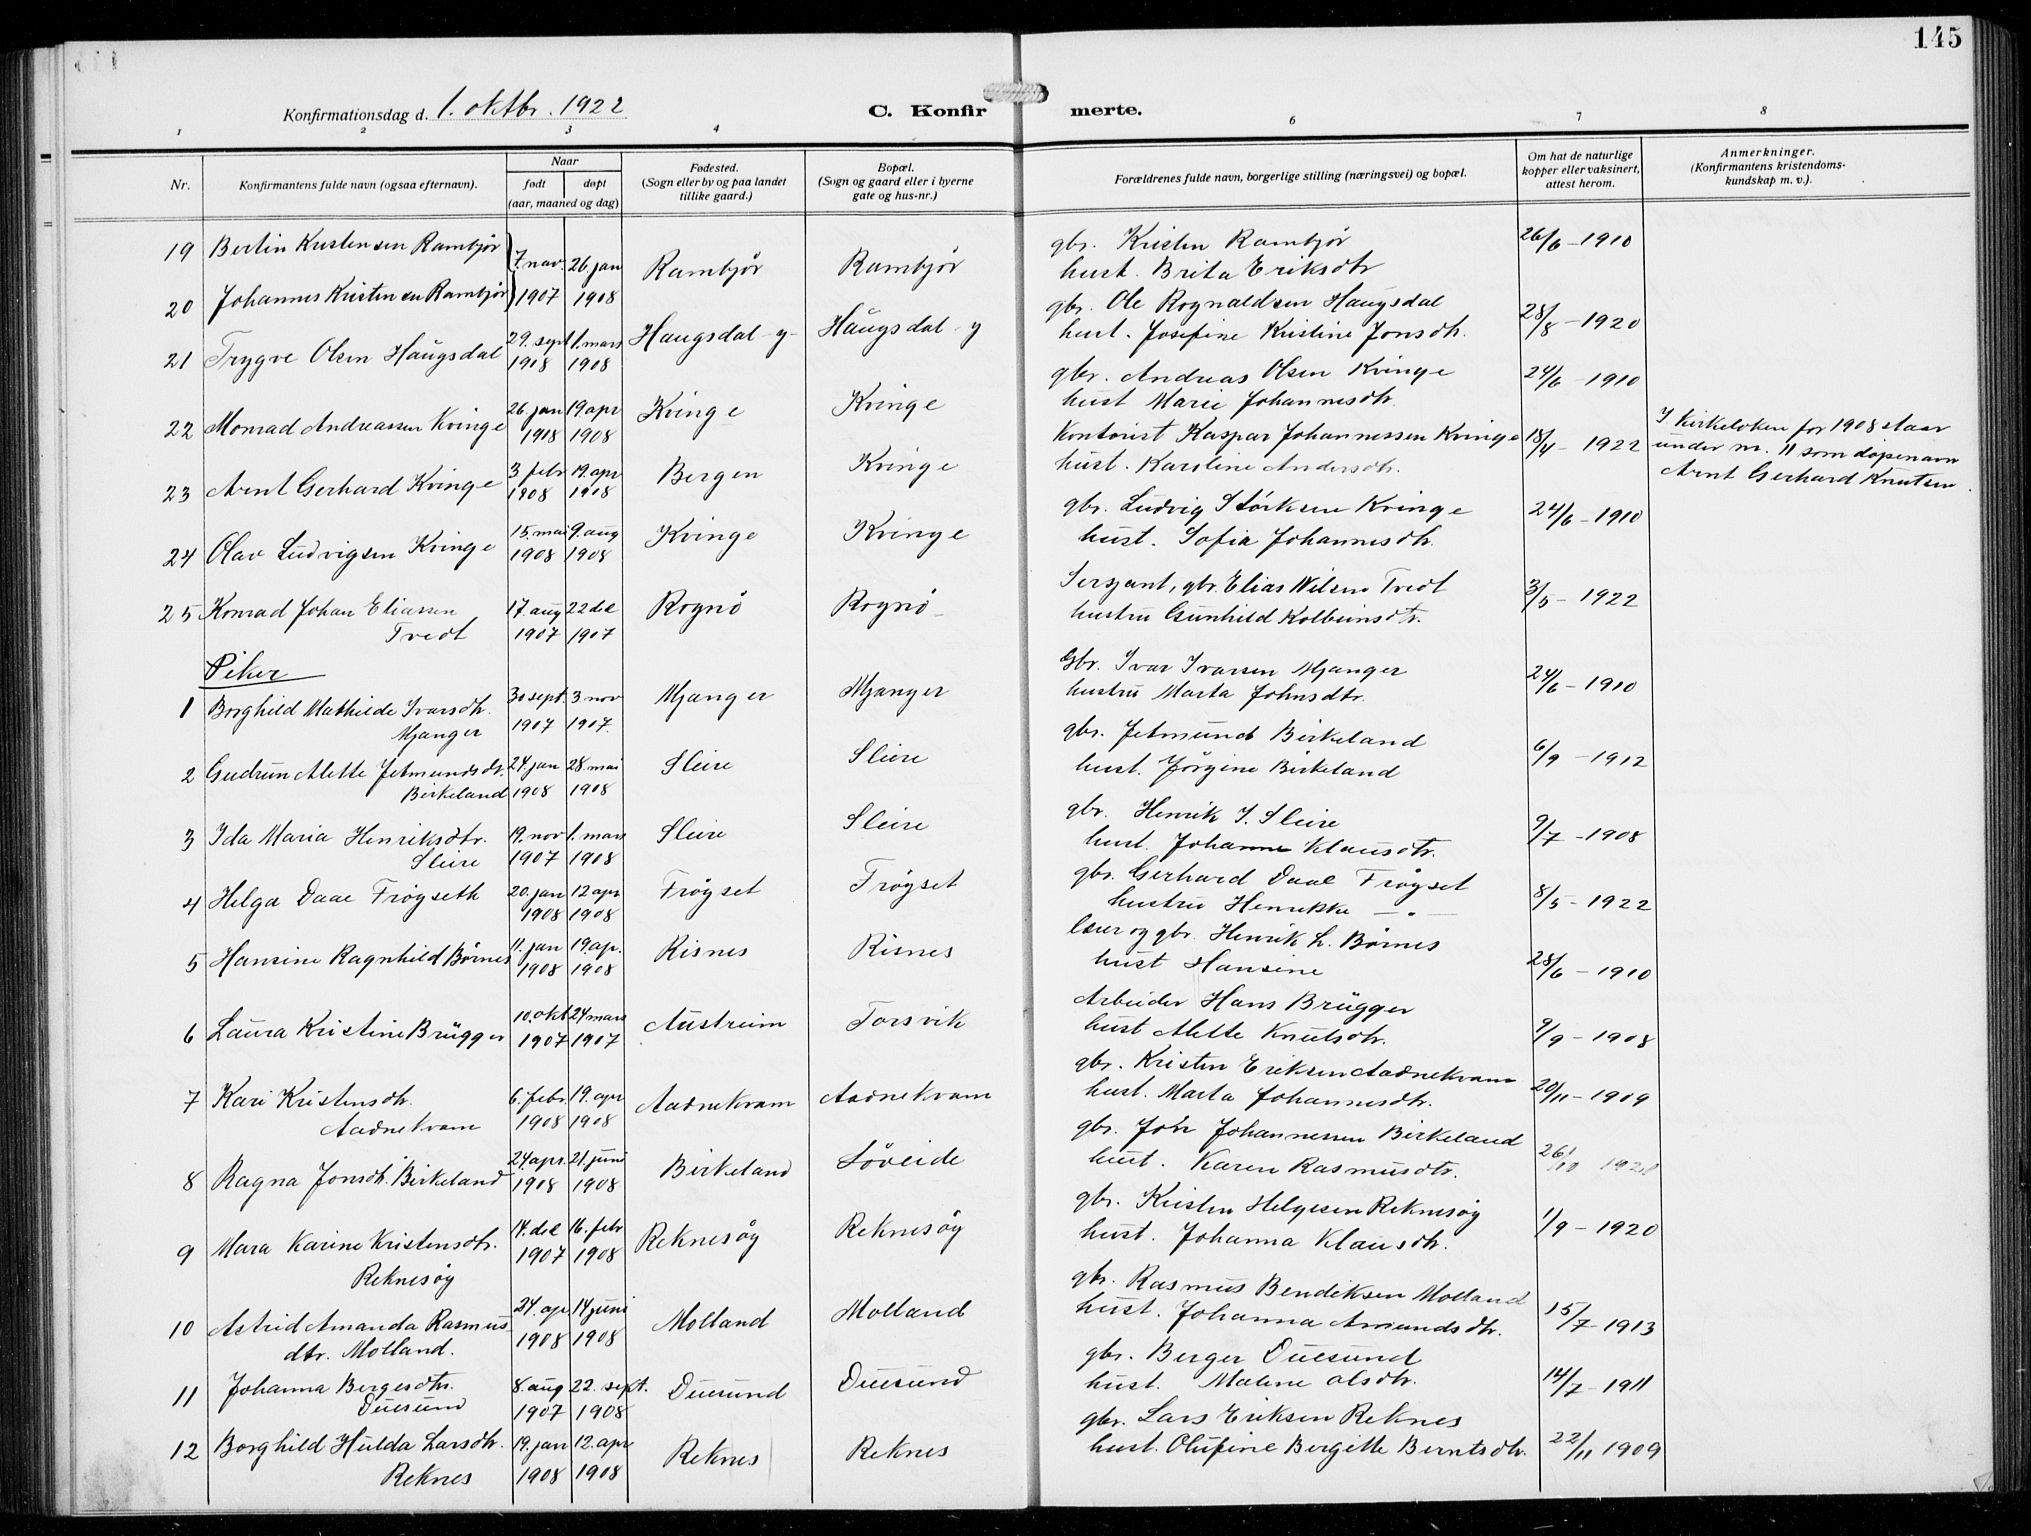 145
Konfirmationsdag d. 1. oktbr. 1922
C. Konfirmerte.
1 2 3 4 5 6 7 8
Nr.
Konfirmantens fulde navn (ogsaa efternavn).
Naar
født
døpt
(aar, maaned og dag)
Fødested.
(Sogn eller by og paa landet
tillike gaard.)
Bopæl.
(Sogn og gaard eller i byerne
gate og hus-nr.)
Forældrenes fulde navn, borgerlige stilling (næringsvei) og bopæl.
Om hat de naturlige
kopper eller vaksinert,
attest herom.
Anmerkninger.
(Konfirmantens kristendoms-
kundskap m. v.).
19 Bertin Kristensen Rambjør 7. nov. 1907 26. jan 1908 Rambjør Rambjør gbr. Kristen Rambjør 26/6 - 1910
hust. Brita Eriksdtr
20 Johannes Kristensen Rambjør
21 Trygve Olsen Haugsdal 29. sept 1908 1. mars 1908 Haugsdal - y - Haugsdal - y gbr. Ole Rognaldsen Haugsdal 28/8 - 1920
hust. Josefine Kristine Jonsdtr.
22 Monrad Andreassen Kvinge 26. jan 1908 19 apr 1908 Kvinge Kvinge gbr. Andreas Olsen Kvinge 24/6 - 1910
hust Marie Johannesdtr.
23 Arnt Gerhard Kvinge 3 febr 1908 19. apr 1908 Bergen Kvinge Kontorist Kaspar Johannessen Kvinge 18/4 - 1922
hust. Karoline Andersdtr.
I kirkeboken for 1908 staar
under nr. 11 som døpenavn
Arnt Gerhard Knutsen.
24 Olav Ludvigsen Kvinge 15. mai 1908 9. aug 1908 Kvinge Kvinge gbr. Ludvig Størksen Kvinge 24/6 - 1910
hust. Sofia Johannesdtr.
25 Konrad Johan Eliassen
Tvedt 17. aug 1907 22 de 1907 Rognø Rognø Sersjant, gbr. Elias Nilsen Tvedt 3/5 - 1922
hustru Gunhild Kolbeinsdtr.
Piker
1 Borghild Mathilde Ivarsdtr.
Mjanger 30 sept. 1907 3 nov 1907. Mjanger Mjanger Gbr. Ivar Ivarsen Mjanger 24/6 - 1910
hustru Marta Johnsdtr.
2 Gudrun Alette Jetmundsdtr.
Birkeland 24. jan 1908 28. mai 1908 Sleire Sleire gbr. Jetmund Birkeland 6/9 - 1912
hust. Jørgine Birkeland
3 Ida Maria Henriksdtr.
Sleire 19. nov 1907 1. mars 1908 Sleire Sleire gbr. Henrik I. Sleire 9/7 - 1908
hust. Johanne Klausdtr.
4 Helga Daae Frøyseth 20. jan 1908 12 apr 1908 Frøyset Frøyset gbr. Gerhard Daae Frøyset 8/5 - 1922
hustru Henrikke — " —
5 Hansine Ragnhild Børnes 11. jan 1908 19. ap. 1908 Risnes Risnes lærer og gbr. Henrik L. Børnes 28/6 - 1910
hust Hansine
6 Laura Kristine Brügger 10. okt 1907 24 mars 1907 Austreim Torsvik Arbeider Hans Brügger 9/9 - 1908
hust Alette Knutsdtr.
7 Kari Kristensdtr.
Aadnekvam 6. febr. 1908 19. apr 1908 Aadnekvam Aadnekvam gbr. Kristen Eriksen Aadnekvam 20/11 - 1909
hust. Marta Johannesdtr.
8 Ragna Jonsdtr. Birkeland 24. apr. 1908 21. juni 1908 Birkeland Løveide gbr. John Johannessen Birkeland 26/10
hust. Karen Rasmusdtr.
9 Mara Karine Kristensdtr.
Reknesøy 14. de 1907 16. febr 1908 Reknesøy Reknesøy gbr. Kristen Helgesen Reknesøy 1/9 - 1920
hust. Johanna Klausdtr.
10 Astrid Amanda Rasmus-
dtr. Molland. 24. ap 1908 14 juni 1908 Molland Molland gbr. Rasmus Bendiksen Molland 15/7 - 1913
hust. Johanna Amundsdtr.
11 Johanna Bergesdtr.
Duesund 8. aug 1907 22. sept. 1908 Duesund Duesund gbr. Berger Duesund 14/7 - 1911
hust. Malene Olsdtr.
12 Borghild Hulda Larsdtr.
Reknes 19. jan 1908 12. apr 1908 Reknes Reknes gbr. Lars Eriksen Reknes 22/11 1909
hust. Olufine Bergitte Berntsdtr.